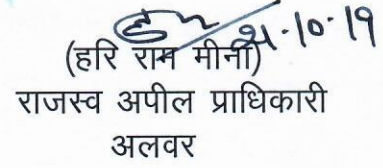 21.10.19
(हरि राम मीना)
राजस्व अपील प्राधिकारी
अलवर